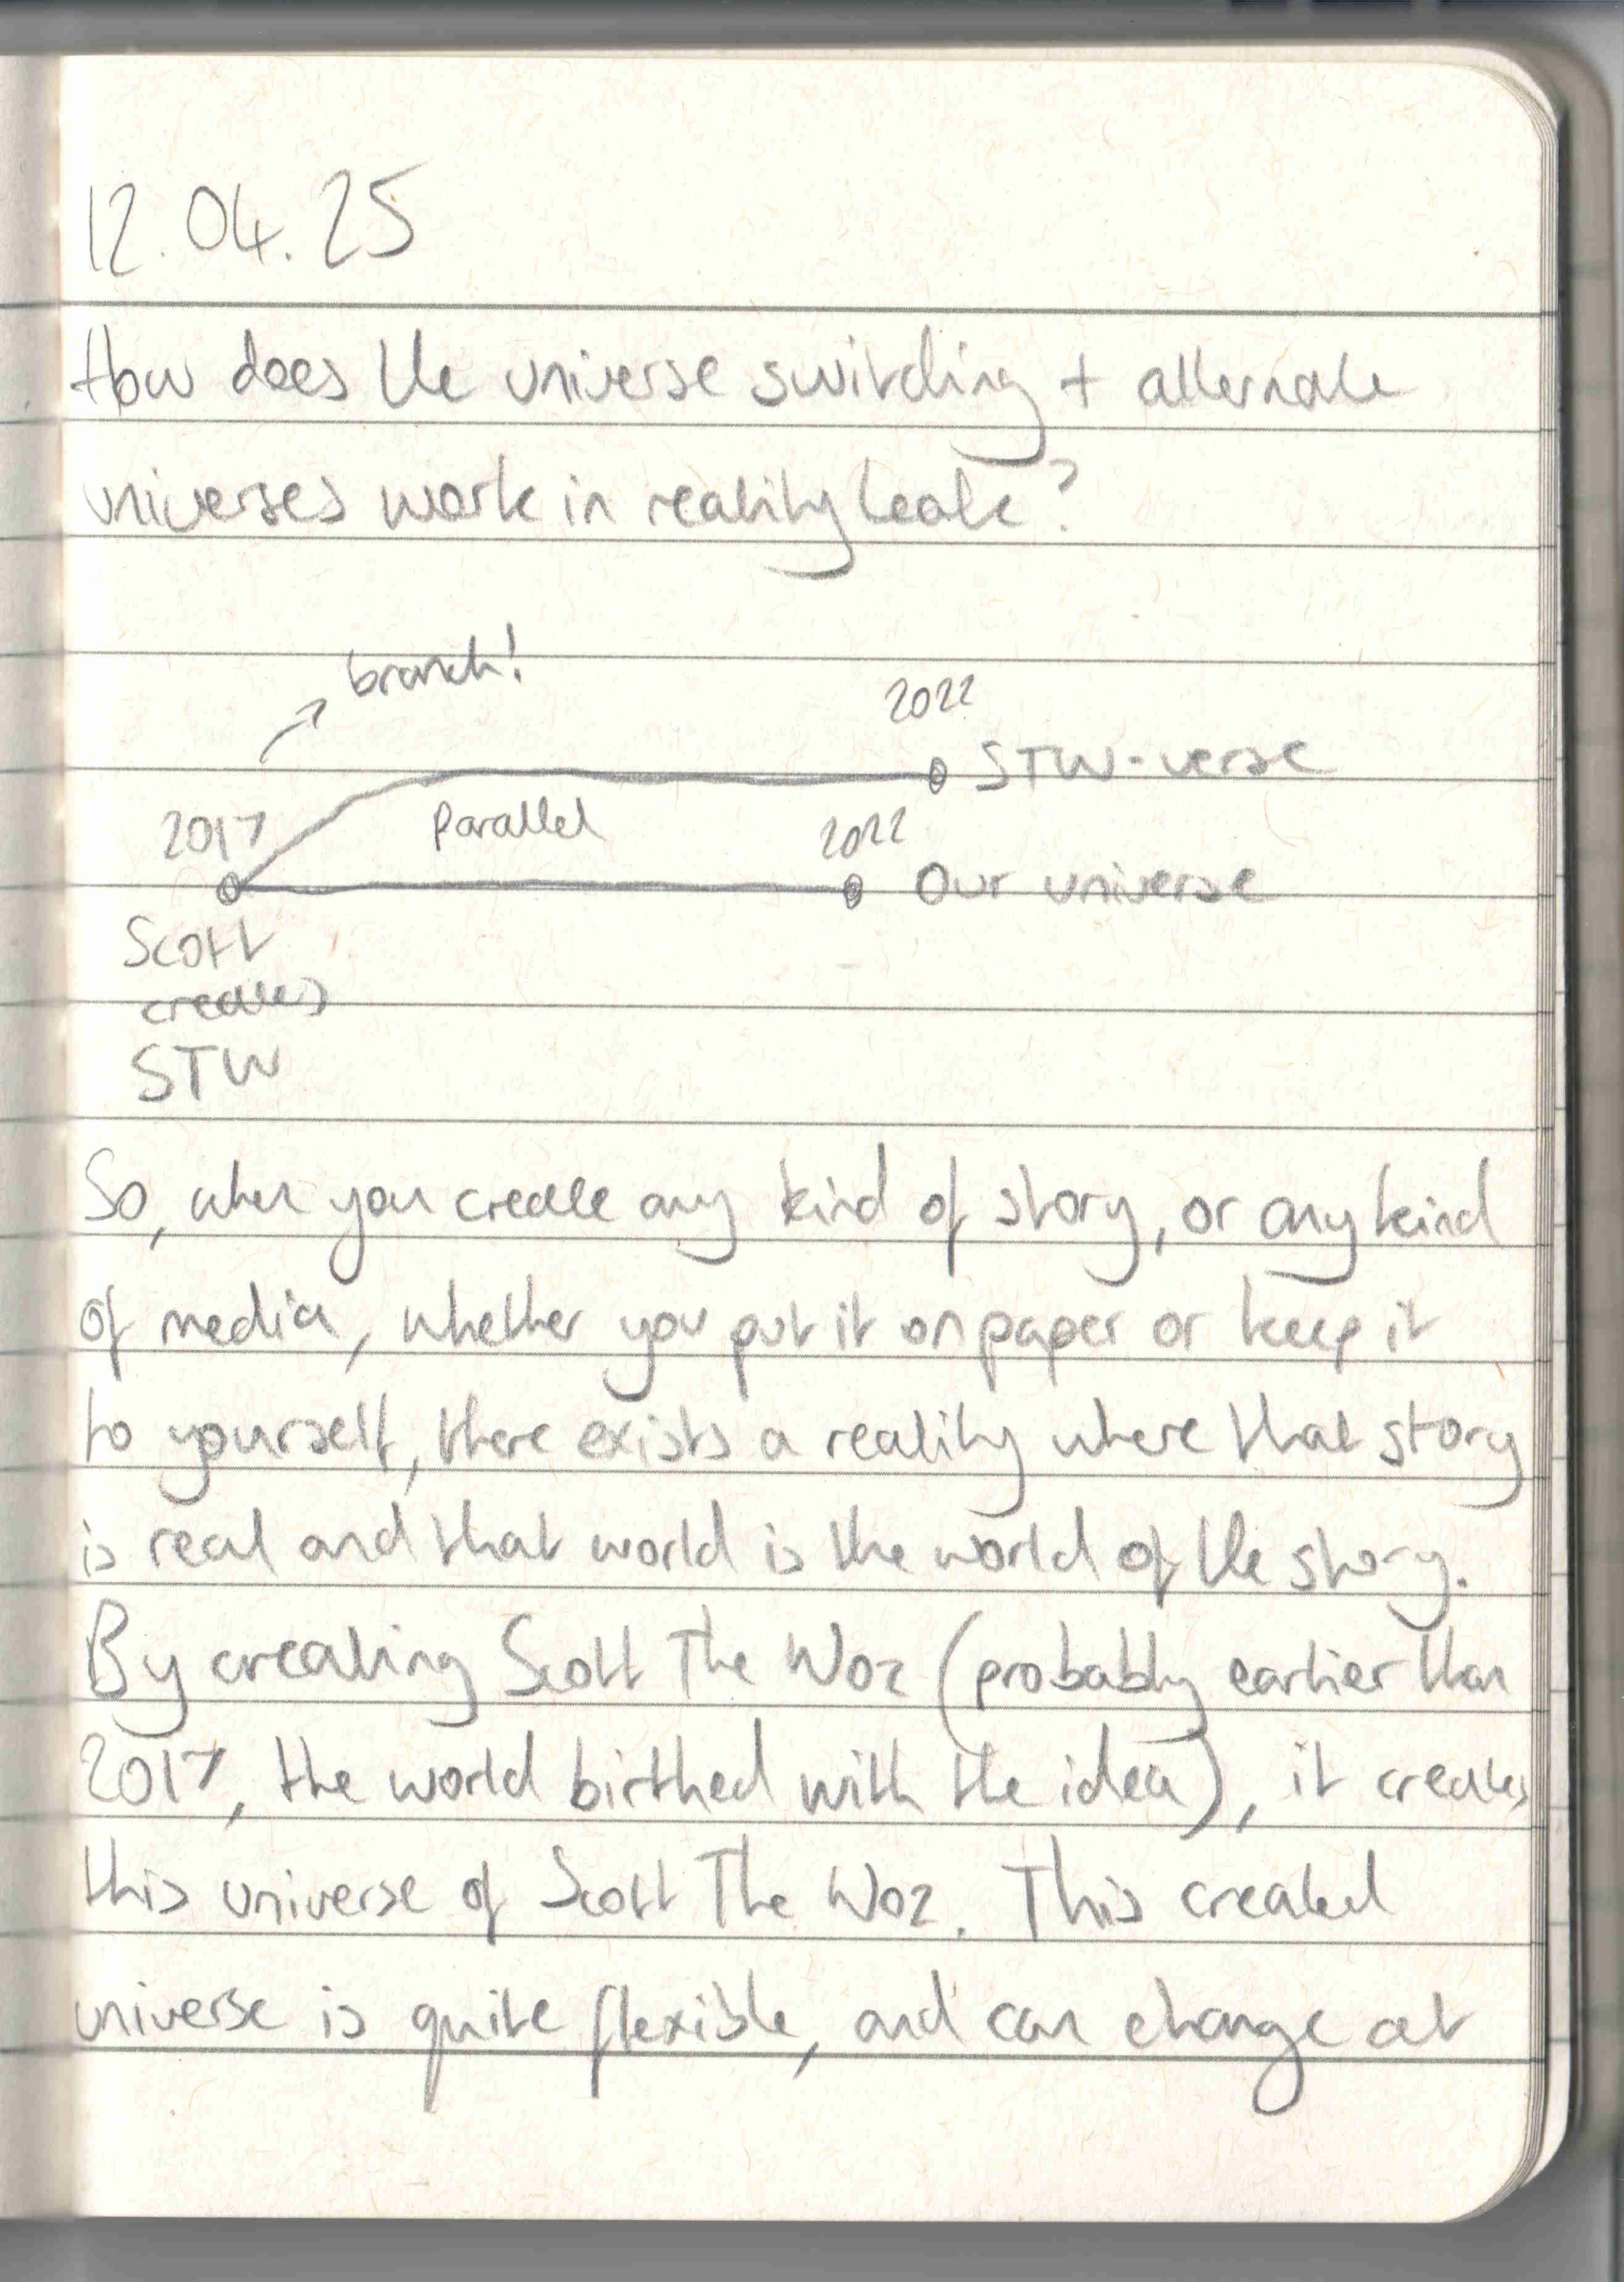 12.04.25
How does the universe switching + alternate
universes work in reality leak?
branch!
2022
STW-verse
2017
Parallel
2022
Our universe
Scott
creates
STW
So, when you create any kind of story, or any kind
of media, whether you put it on paper or keep it
to yourself, there exists a reality where that story
is real and that world is the world of the story.
By creating Scott The Woz (probably earlier than
2017, the world birthed with the idea), it creates
this universe of Scott The Woz. This created
universe is quite flexible, and can change at